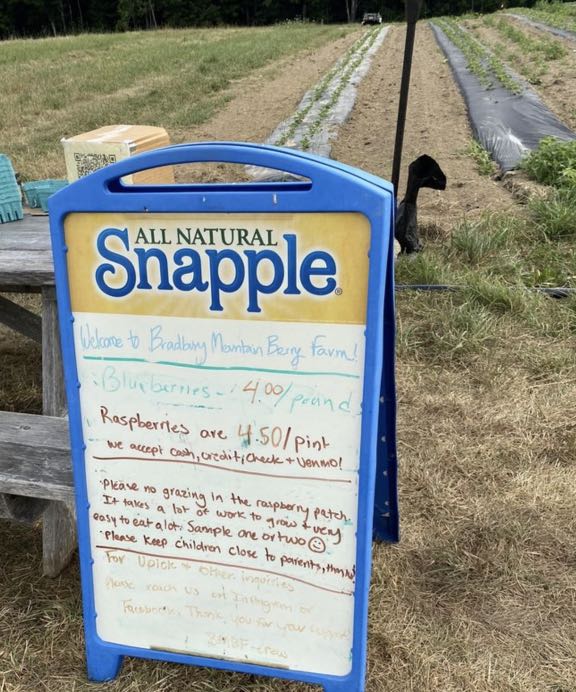 ALL NATURAL
Snapple
Welcome to Bradbury Mountain Berry Farm!
Blueberries - 4.00/pound
Raspberries are 4.50/pint
we accept cash, credit, check + venmo!
·Please no grazing in the raspberry patch.
It takes a lot of work to grow + very
easy to eat a lot. Sample one or two ☺
·Please keep children close to parents, thanks
For Upick + other inquiries
Please reach us on Instagram or
Facebook. Thank you for your support
BMBF crew